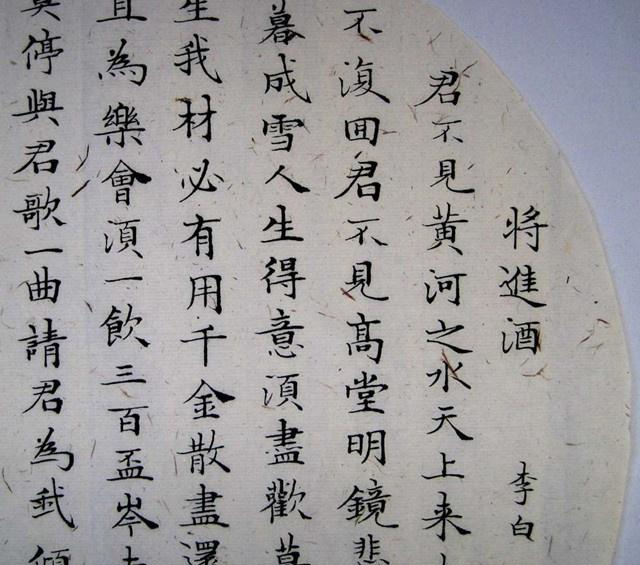 將進酒
李白
君不見黃河之水天上来
不復回君不見高堂明鏡悲
暮成雪人生得意須盡歡莫
生我材必有用千金散盡還
且為樂會須一飲三百盃岑
莫停與君歌一曲請君為我傾